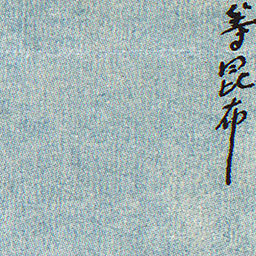 等昆布